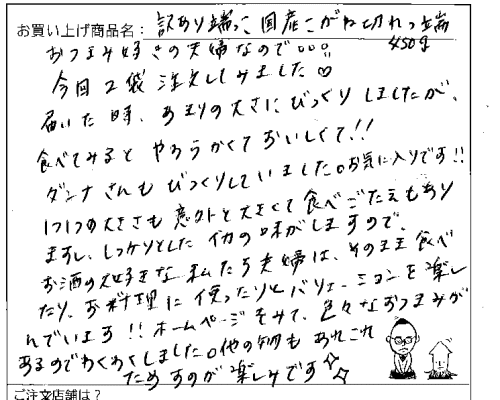 お買い上げ商品名：訳あり端っこ 国産こがね切れっ端
450g
おつまみ好きの夫婦なので○○○
今回2袋 注文してみました
届いた時、あまりの大きさにびっくりしましたが、
食べてみると やわらかくて おいしくて!!
ダンナさんも びっくりしていました。お気に入りです!!
1つ1つの大きさも 意外と大きくて食べごたえもあり
ますし、しっかりとした イカの味がしますので、
お酒の大好きな 私たち夫婦は、そのまま食べ
たり、お料理に 使ったりとバリエーションを楽し
んでいます!! ホームページをみて、色々なおつまみが
あるのでわくわくしました。他の物も あれこれ
ためすのが楽しみです☆☆
ご注文店舗は？